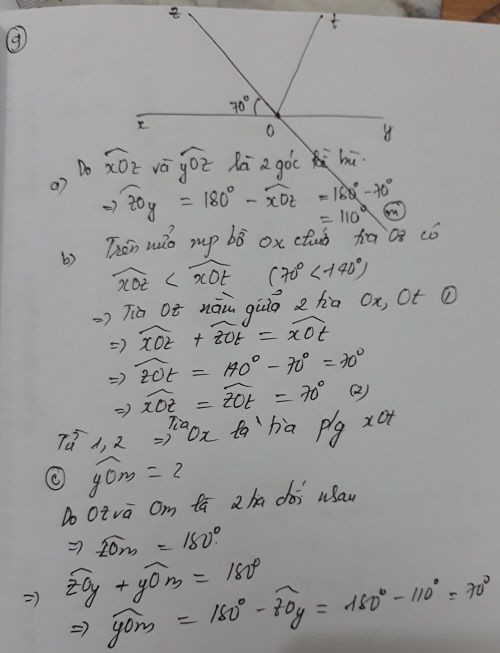 9
z t
70°
x O y
a) Do xOz và yOz là 2 góc kề bù.
=> zOy = 180° - xOz = 180° - 70°
= 110° m
b) Trên nửa mp bờ Ox chứa tia Oz có
xOz < xOt (70° < 140°)
=> Tia Oz nằm giữa 2 tia Ox, Ot (1)
=> xOz + zOt = xOt
=> zOt = 140° - 70° = 70°
=> xOz = zOt = 70° (2)
Từ 1, 2 => Tia Ox là tia p/g xOt
c) yOm = ?
Do Oz và Om là 2 tia đối nhau
=> zOm = 180°
=> zOy + yOm = 180°
=> yOm = 180° - zOy = 180° - 110° = 70°